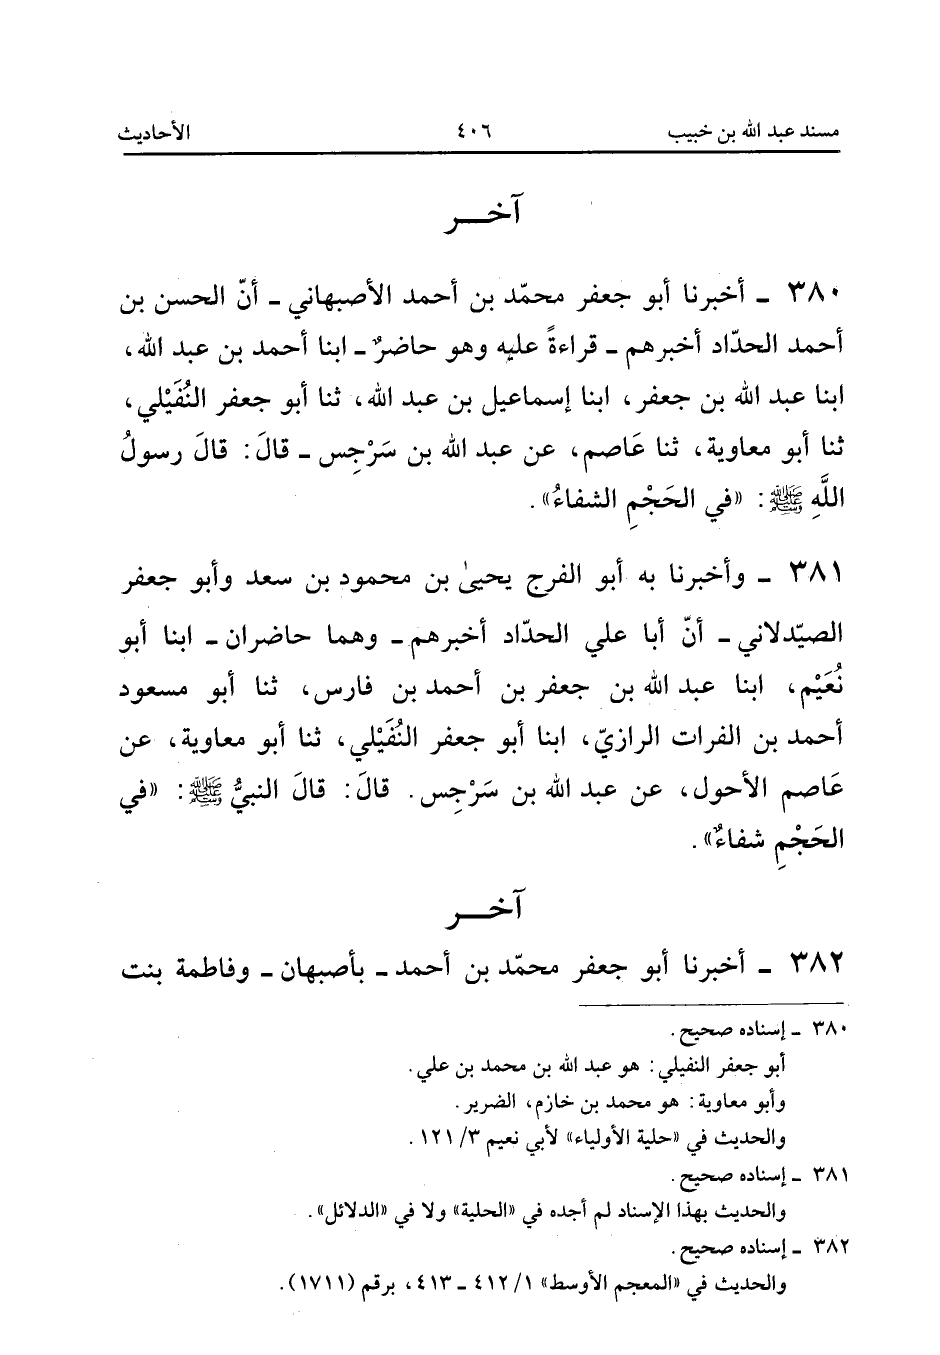 مسند عبد الله بن خبيب ٤٠٦ الأحاديث
آخـــر
٣٨٠ ـ أخبرنا أبو جعفر محمّد بن أحمد الأصبهاني ـ أنّ الحسن بن
أحمد الحدّاد أخبرهم ـ قراءةً عليه وهو حاضرٌ ـ ابنا أحمد بن عبد الله،
ابنا عبد الله بن جعفر، ابنا إسماعيل بن عبد الله، ثنا أبو جعفر النُفَيْلي،
ثنا أبو معاوية، ثنا عَاصم، عن عبد الله بن سَرْجِس ـ قالَ: قالَ رسولُ
اللَّهِ ﷺ: «في الحَجْمِ الشفاءُ».
٣٨١ ـ وأخبرنا به أبو الفرج يحيىٰ بن محمود بن سعد وأبو جعفر
الصيّدلاني ـ أنّ أبا علي الحدّاد أخبرهم ـ وهما حاضران ـ ابنا أبو
نُعَيْم، ابنا عبد الله بن جعفر بن أحمد بن فارس، ثنا أبو مسعود
أحمد بن الفرات الرازيّ، ابنا أبو جعفر النُفَيْلي، ثنا أبو معاوية، عن
عَاصم الأحول، عن عبد الله بن سَرْجِس. قالَ: قالَ النبيُّ ﷺ: «في
الحَجْمِ شفاءٌ».
آخـــر
٣٨٢ ـ أخبرنا أبو جعفر محمّد بن أحمد ـ بأصبهان ـ وفاطمة بنت
٣٨٠ ـ إسناده صحيح.
أبو جعفر النفيلي: هو عبد الله بن محمد بن علي.
وأبو معاوية: هو محمد بن خازم، الضرير.
والحديث في «حلية الأولياء» لأبي نعيم ٣/ ١٢١.
٣٨١ ـ إسناده صحيح.
والحديث بهذا الإسناد لم أجده في «الحلية» ولا في «الدلائل».
٣٨٢ ـ إسناده صحيح.
والحديث في «المعجم الأوسط» ١/ ٤١٢ ـ ٤١٣، برقم (١٧١١).